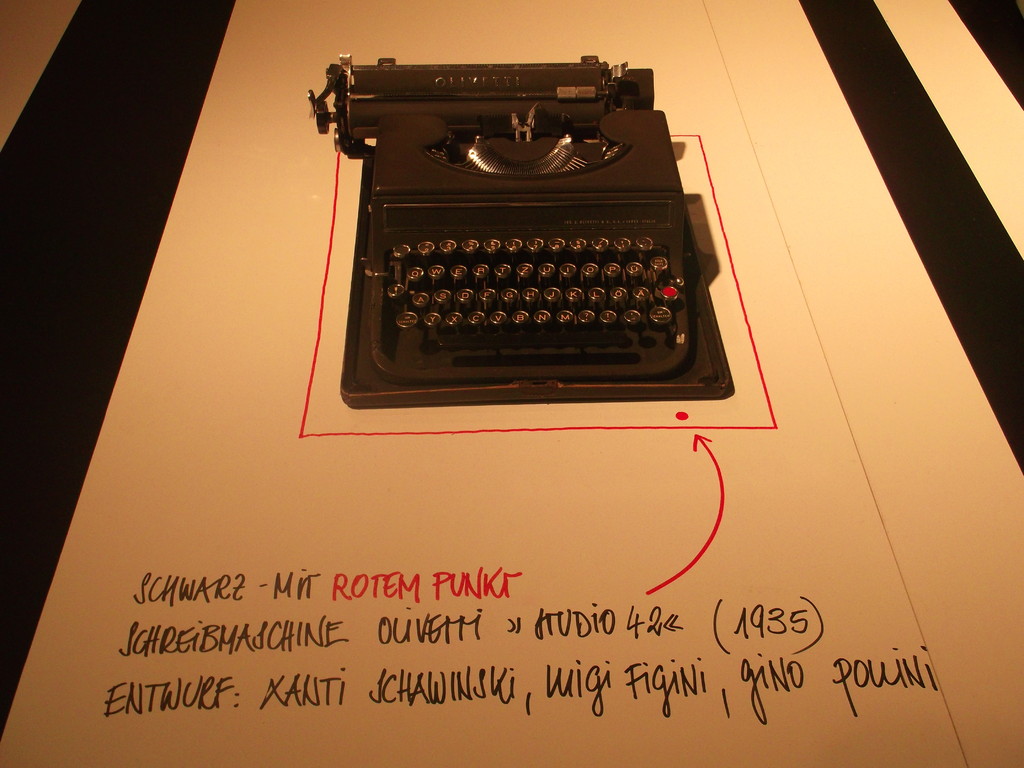 OLIVETTI
Q W E R T Z U I O P Ü
A S D F G H J K L Ö Ä
Y X C V B N M
SCHWARZ - MIT ROTEM PUNKT
SCHREIBMASCHINE OLIVETTI » STUDIO 42« (1935)
ENTWURF: XANTI SCHAWINSKI, LUIGI FIGINI, GINO POLLINI